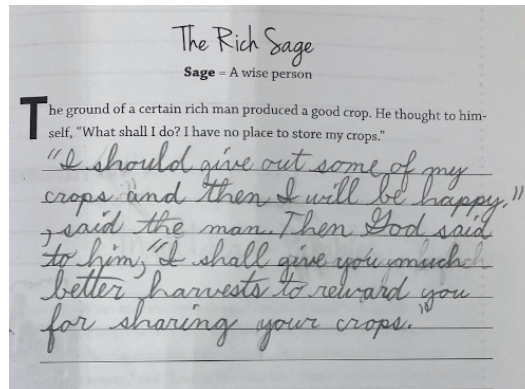 The Rich Sage
Sage = A wise person
The ground of a certain rich man produced a good crop. He thought to him-
self, “What shall I do? I have no place to store my crops.”
“I should give out some of my
crops and then I will be happy.”
, said the man. Then God said
to him, “I shall give you much
better harvests to reward you
for sharing your crops.”